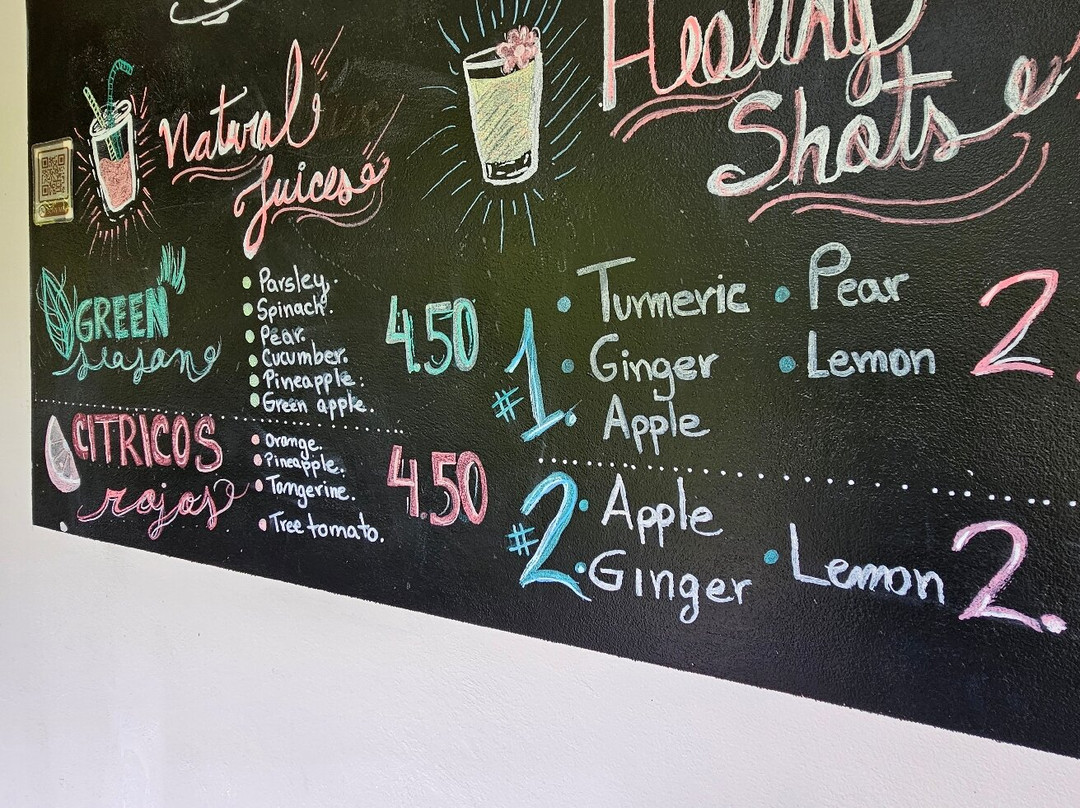 Natural
Juices
GREEN
seajane
• Parsley.
• Spinach.
• Pear.
• Cucumber.
• Pineapple.
• Green apple.
4.50
CITRICOS
rojos
• Orange.
• Pineapple.
• Tangerine.
• Tree tomato.
4.50
Healthy
Shots
#1.
• Turmeric • Pear
• Ginger • Lemon
Apple
2
#2
• Apple
• Ginger • Lemon
2.